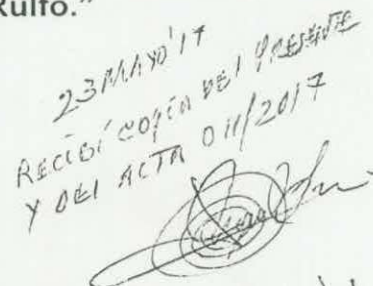 Rulfo."
23 MAYO'17
RECIBÍ COPIA DEL PRESENTE
Y DEL ACTA 011/2017